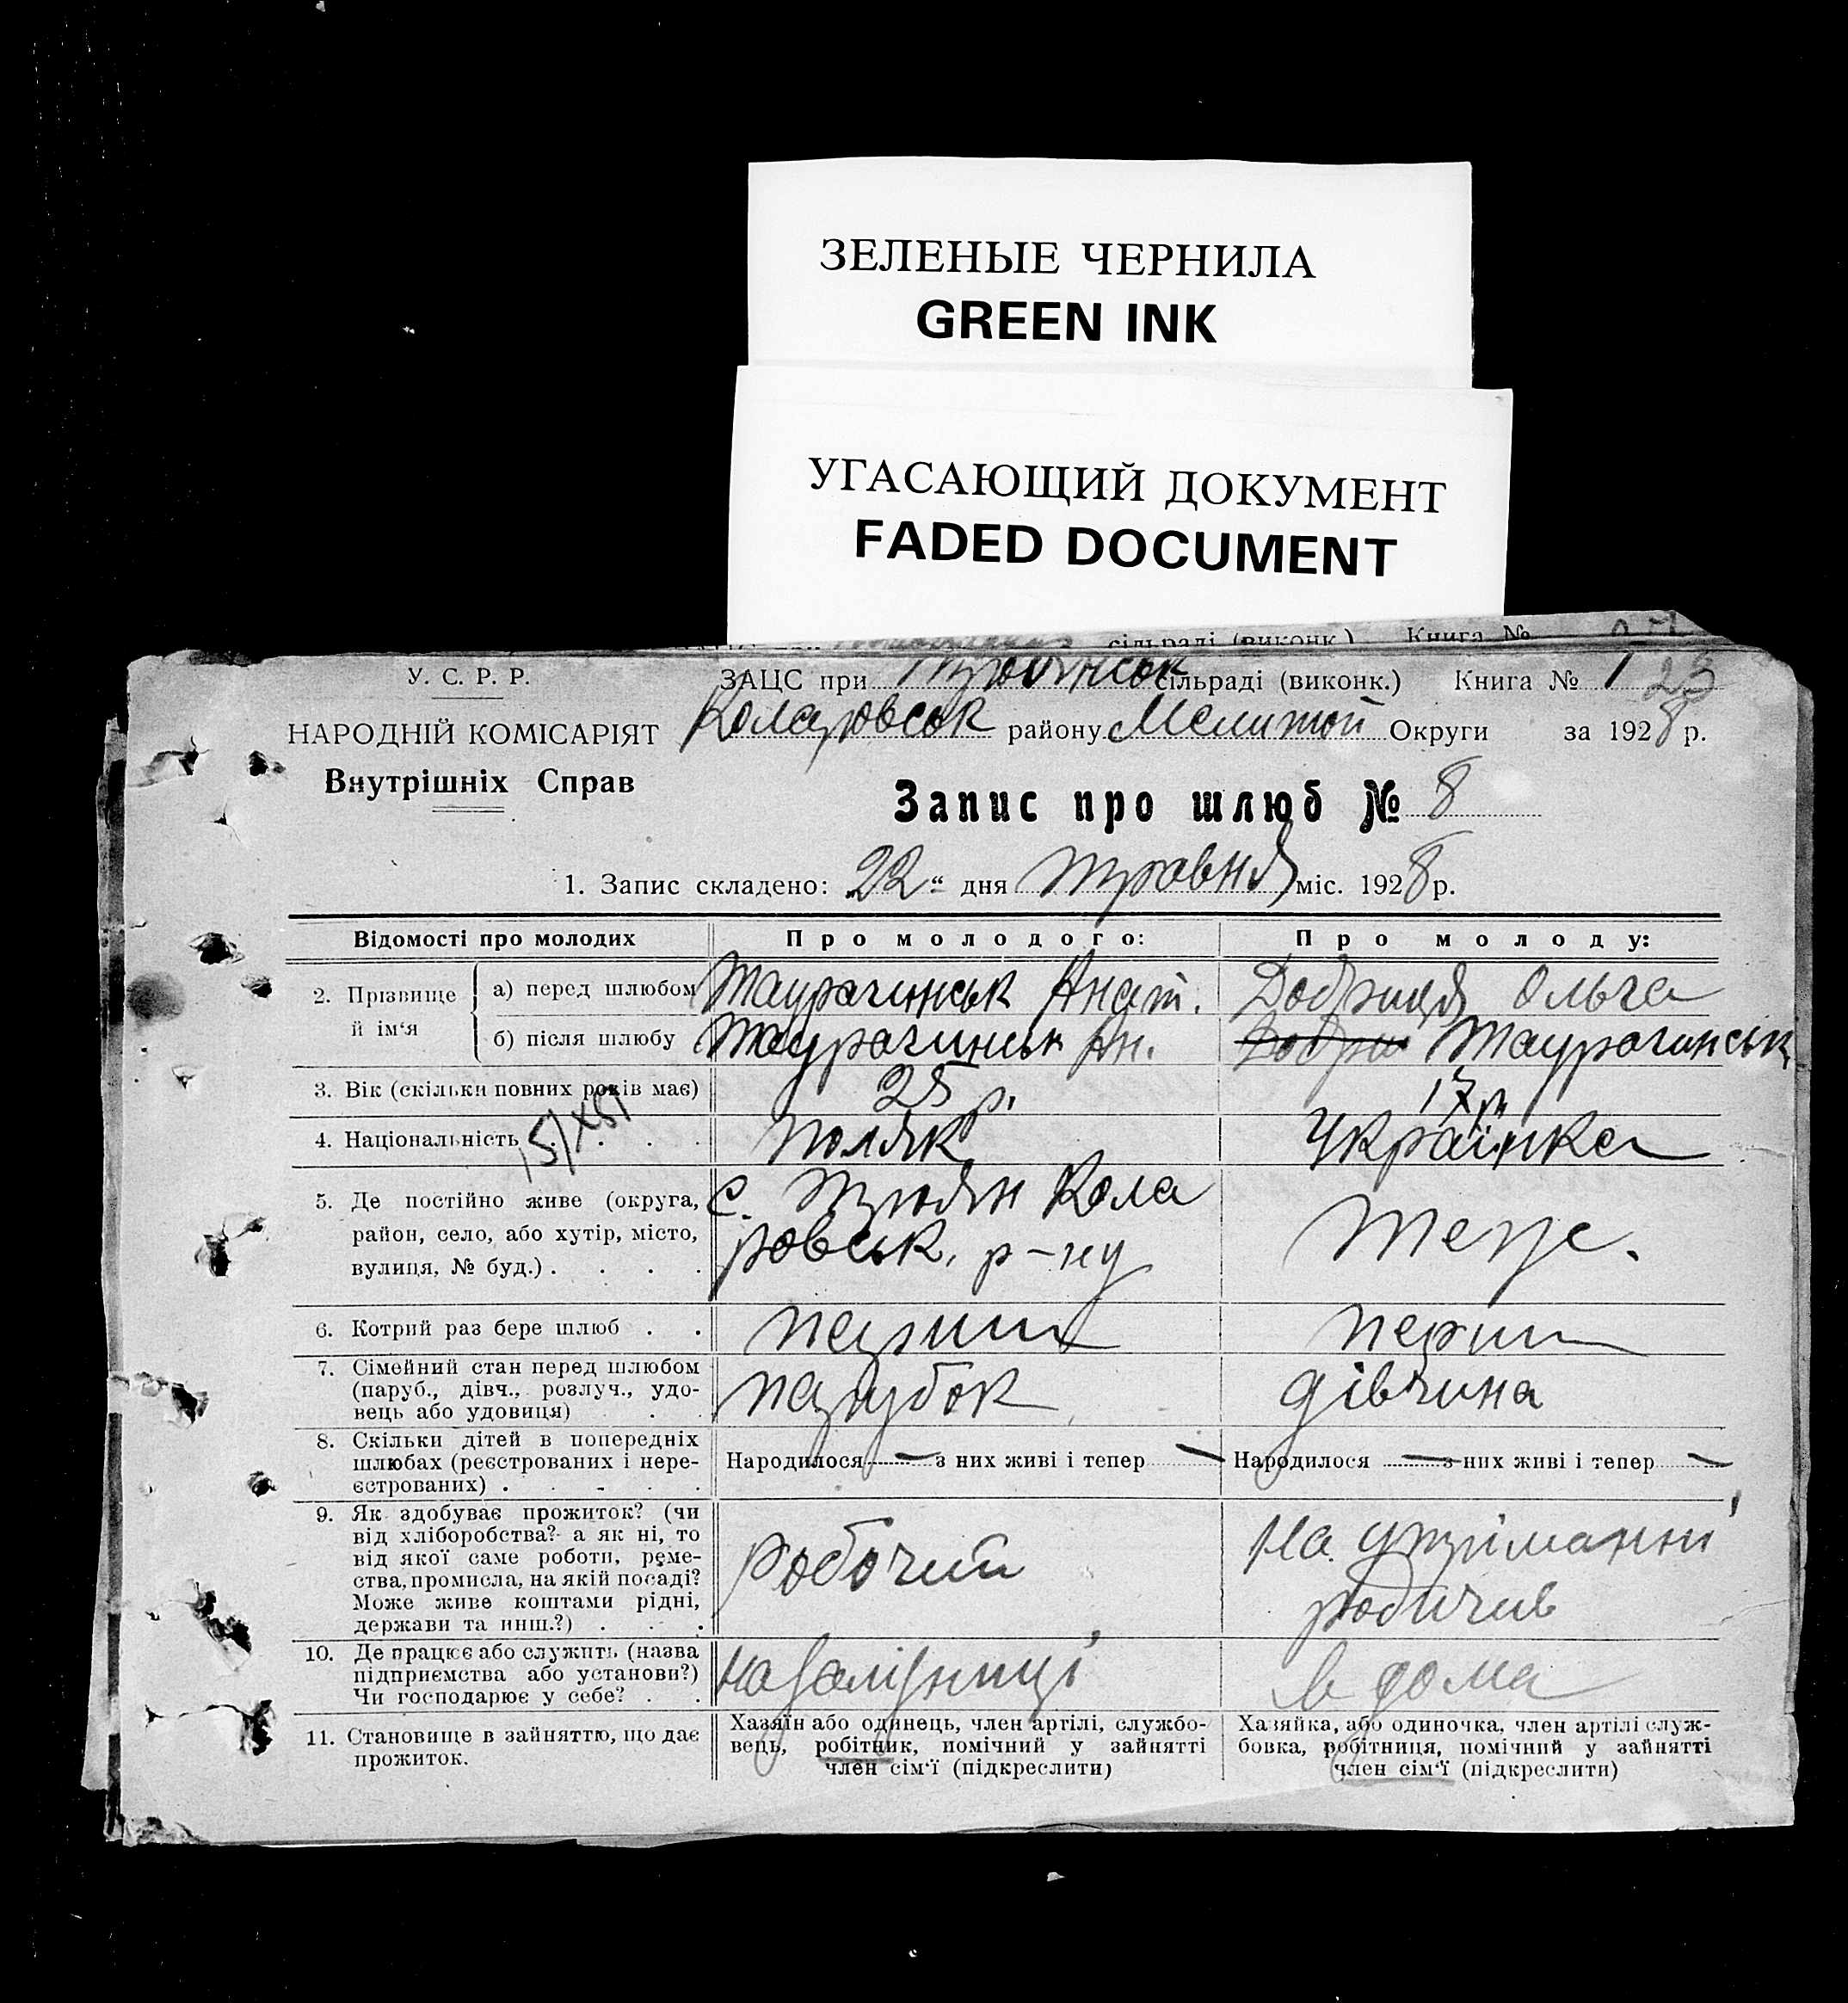 ЗЕЛЕНЫЕ ЧЕРНИЛА
GREEN INK
УГАСАЮЩИЙ ДОКУМЕНТ
FADED DOCUMENT
сільраді (виконк.) Книга №
У. С. Р. Р.
ЗАЦС при Троянськ сільраді (виконк.) Книга № 1 23
НАРОДНІЙ КОМІСАРІЯТ
Коларовськ району Мелитоп Округи за 1928 р.
Внутрішніх Справ
Запис про шлюб № 8
1. Запис складено: 22 “ дня травня міс. 1928 р.
Відомості про молодих Про молодого: Про молоду:
2. Прізвище й ім‘я
а) перед шлюбом Таурагинськ Анат. Добриця Ольга
б) після шлюбу Таурагинськ Ан. Добри Таурагинськ
3. Вік (скільки повних років має) 25 р. 17 р.
15/X51
4. Національність Поляк Українка
5. Де постійно живе (округа, район, село, або хутір, місто, вулиця, № буд.)
с. Троян Кола
ровськ. р-ну
теж.
6. Котрий раз бере шлюб перший перш
7. Сімейний стан перед шлюбом
(паруб., дівч., розлуч., удо-
вець або удовиця)
парубок дівчина
8. Скільки дітей в попередніх
шлюбах (реєстрованих і нере-
єстрованих)
Народилося — з них живі і тепер — Народилося — з них живі і тепер —
9. Як здобуває прожиток? (чи
від хліборобства? а як ні, то
від якої саме роботи, реме-
ства, промисла, на якій посаді?
Може живе коштами рідні,
держави та инш.?)
робочий
на утріманні
родичив
10. Де працює або служить (назва
підприємства або установи?)
Чи господарює у себе?
на залізниці в дома
11. Становище в зайняттю, що дає
прожиток.
Хазяїн або одинець, член артілі, службо-
вець, робітник, помічний у зайнятті
член сім‘ї (підкреслити)
Хазяйка, або одиночка, член артілі служ-
бовка, робітниця, помічний у зайнятті
член сім‘ї (підкреслити)